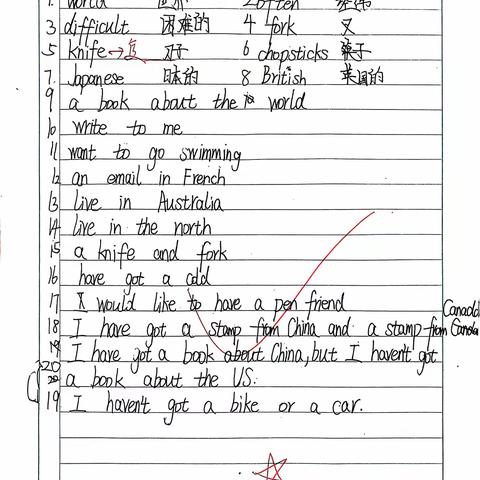 1. world 世界 2 often 经常
3 difficult 困难的 4 fork 叉
5 knife → 复 刀子 6 chopsticks 筷子
7. Japanese 日本的 8 British 英国的
9 a book about the world
10 write to me
11 want to go swimming
12 an email in French
13 live in Australia
14 live in the north
15 a knife and fork
16 have got a cold
17 I would like to have a pen friend
18 I have got a stamp from China and a stamp from Canada
19 I have got a book about China, but I haven't got
20 a book about the U.S.
19 I haven't got a bike or a car.